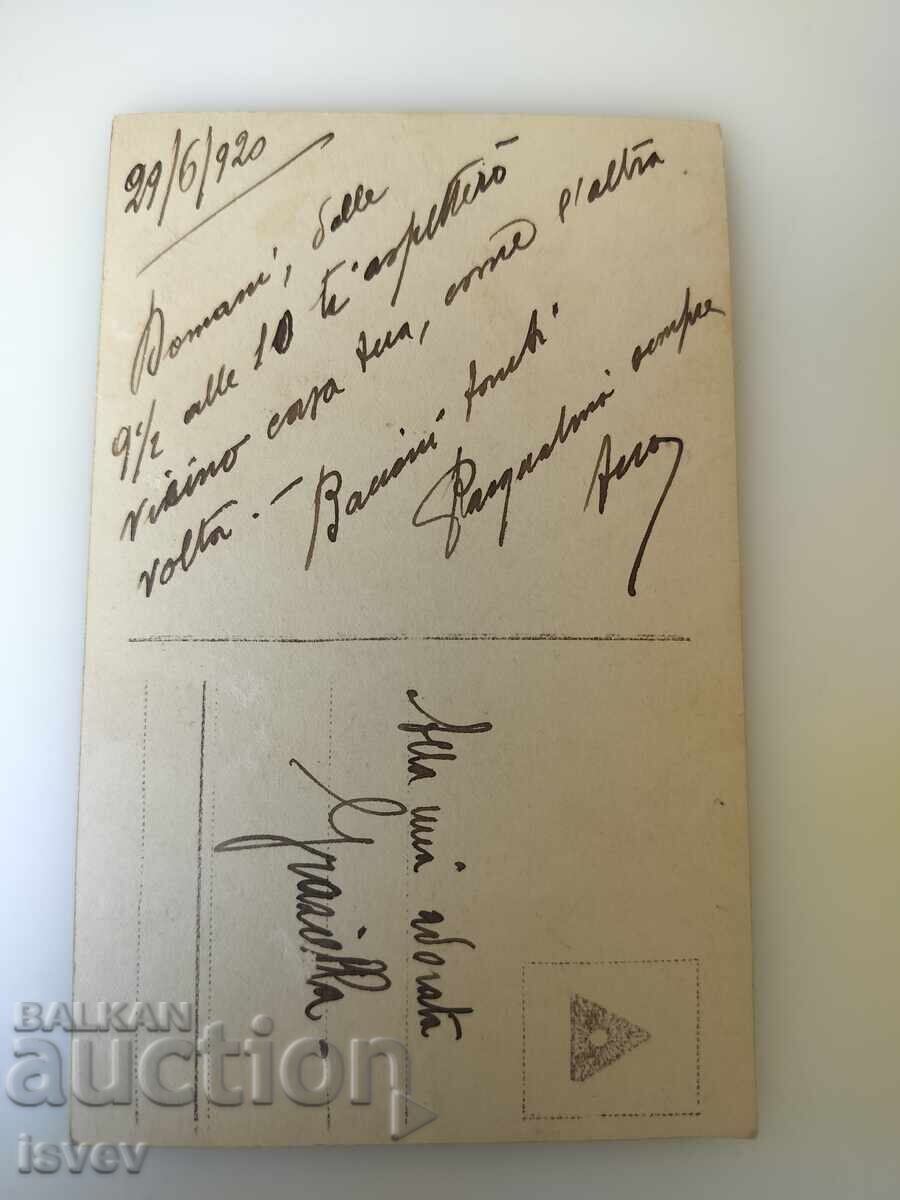 29/6/920
Domani, dalle
9½ alle 10 ti aspetterò
vicino casa tua, come l'altra
volta. – Bacioni tanti
Pasqualino sempre
tuo
Alla mia adorata
Graziella
BALKAN
auction
isvev